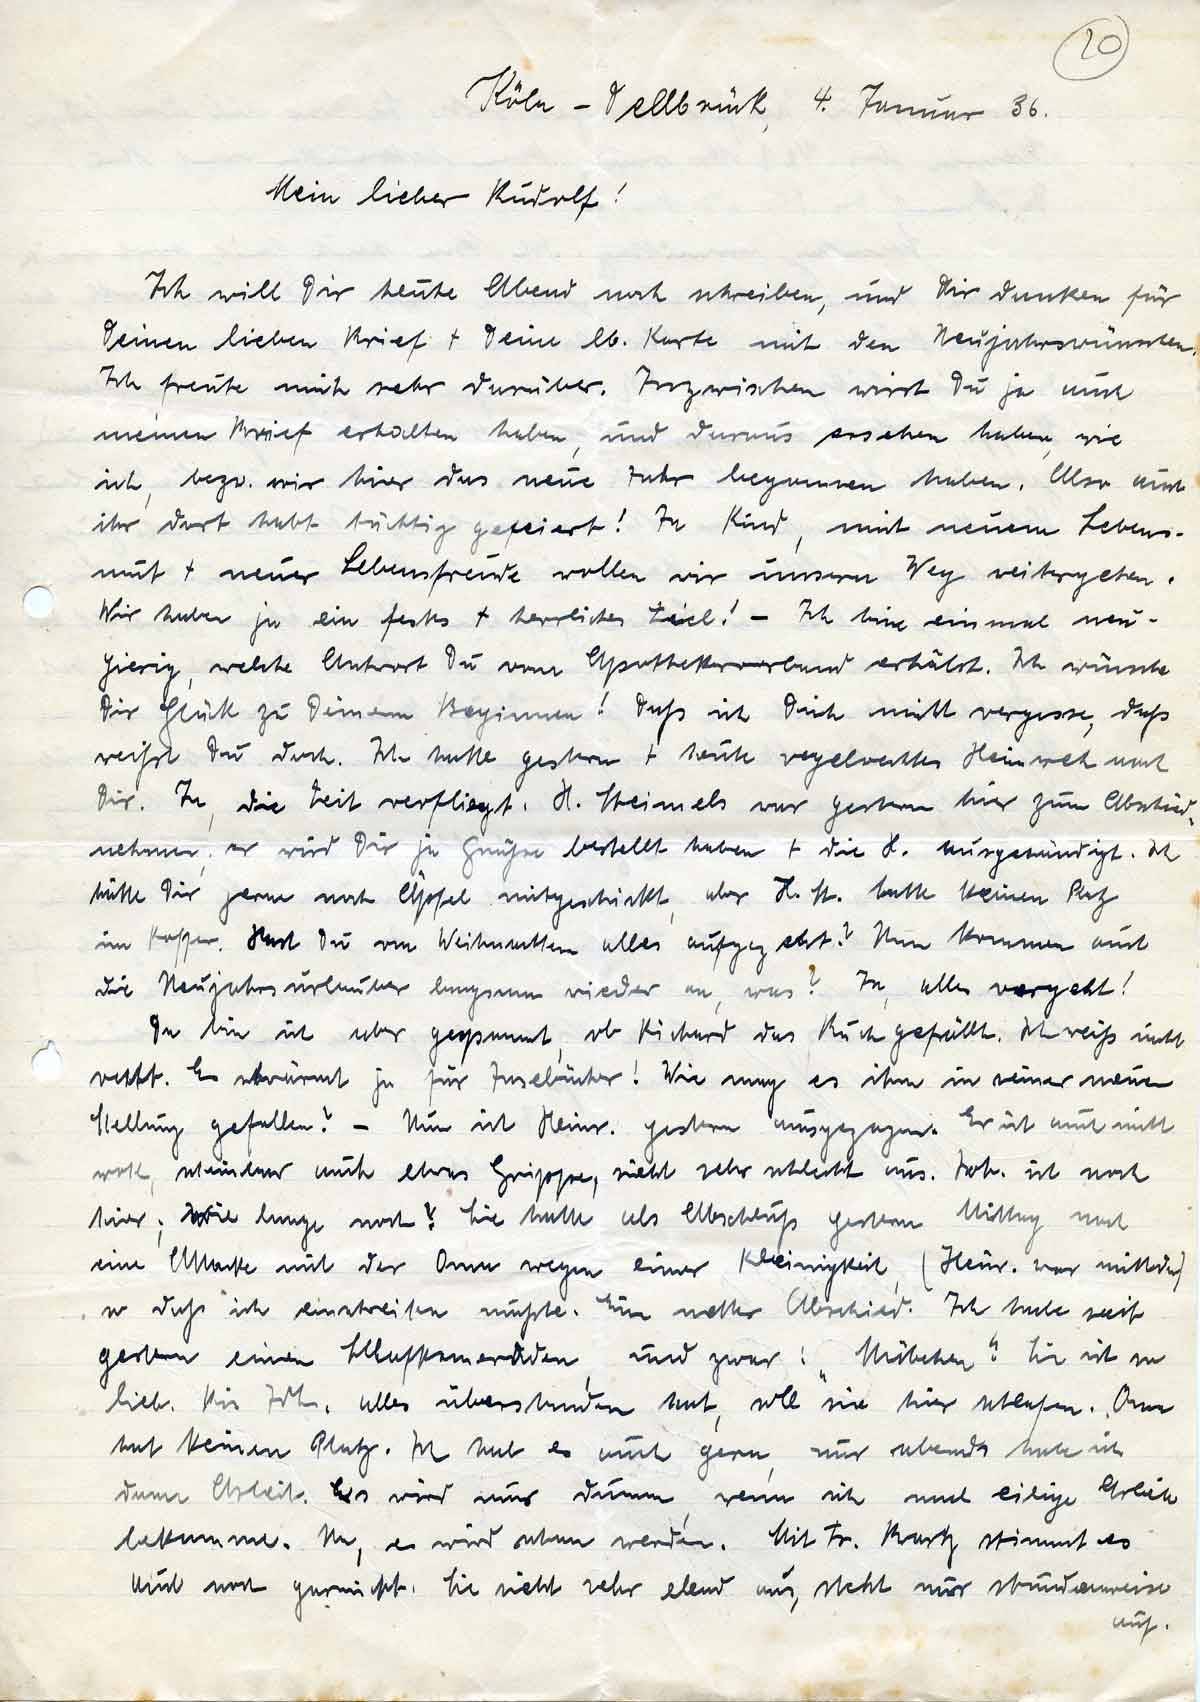 20
Köln - Dellbrück, 4. Januar 36.
Mein lieber Rudolf!
Ich will Dir heute Abend noch schreiben, und Dir danken für
Deinen lieben Brief + Deine lb. Karte mit den Neujahrswünschen.
Ich freute mich sehr darüber. Inzwischen wirst Du ja auch
meinen Brief erhalten haben, und daraus ersehen haben, wie
ich, bezw. wir hier das neue Jahr begonnen haben. Also auch
ihr dort habt tüchtig gefeiert! Ja Kind, mit neuem Lebens-
mut + neuer Lebensfreude wollen wir unsern Weg weitergehen.
Wir haben ja ein festes + herrliches Ziel! - Ich bin einmal neu-
gierig, welche Antwort Du vom Apothekerverband erhälst. Ich wünsche
Dir Glück zu Deinem Beginnen! Daß ich Dich nicht vergesse, daß
weißt Du doch. Ich hatte gestern + heute regelrechtes Heimweh nach
Dir. Ja, die Zeit verfliegt. H. Steimels war gestern hier zum Abschied-
nehmen, er wird Dir ja Grüße bestellt haben + die H. ausgehändigt. Ich
hätte Dir gerne noch Äpfel mitgeschickt, aber H. St. hatte keinen Platz
im Koffer. Hast Du von Weihnachten alles aufgezehrt? Nun kommen auch
die Neujahrsurlauber langsam wieder an, was? Ja, alles vergeht!
Da bin ich aber gespannt, ob Richard das Buch gefällt. Ich weiß nicht
recht. Er schwärmt ja für Inselbücher! Wie mag es ihm in seiner neuen
Stellung gefallen? - Nun ist Heinr. gestern ausgezogen. Er ist auch nicht
wohl, scheinbar auch etwas Grippe, sieht sehr schlecht aus. Joh. ist noch
hier; wie lange noch? Sie hatte als Abschluß gestern Mittag noch
eine Attacke mit der Oma wegen einer Kleinigkeit, (Heinr. war nicht da)
so daß ich einschreiten mußte. Ein netter Abschied. Ich habe seit
gestern einen Schlafkameraden, und zwar: "Mübchen" Sie ist so
lieb. Bis Joh. alles überstanden hat, soll sie hier schlafen. Oma
hat keinen Platz. Ich hab es auch gern, nur abends habe ich
dann Arbeit. Es wird nur dumm, wenn ich noch eilige Arbeit
bekomme. Na, es wird schon werden. Mit Fr. Kratz stimmt es
auch noch garnicht. Sie sieht sehr elend aus, steht nur stundenweise
auf.